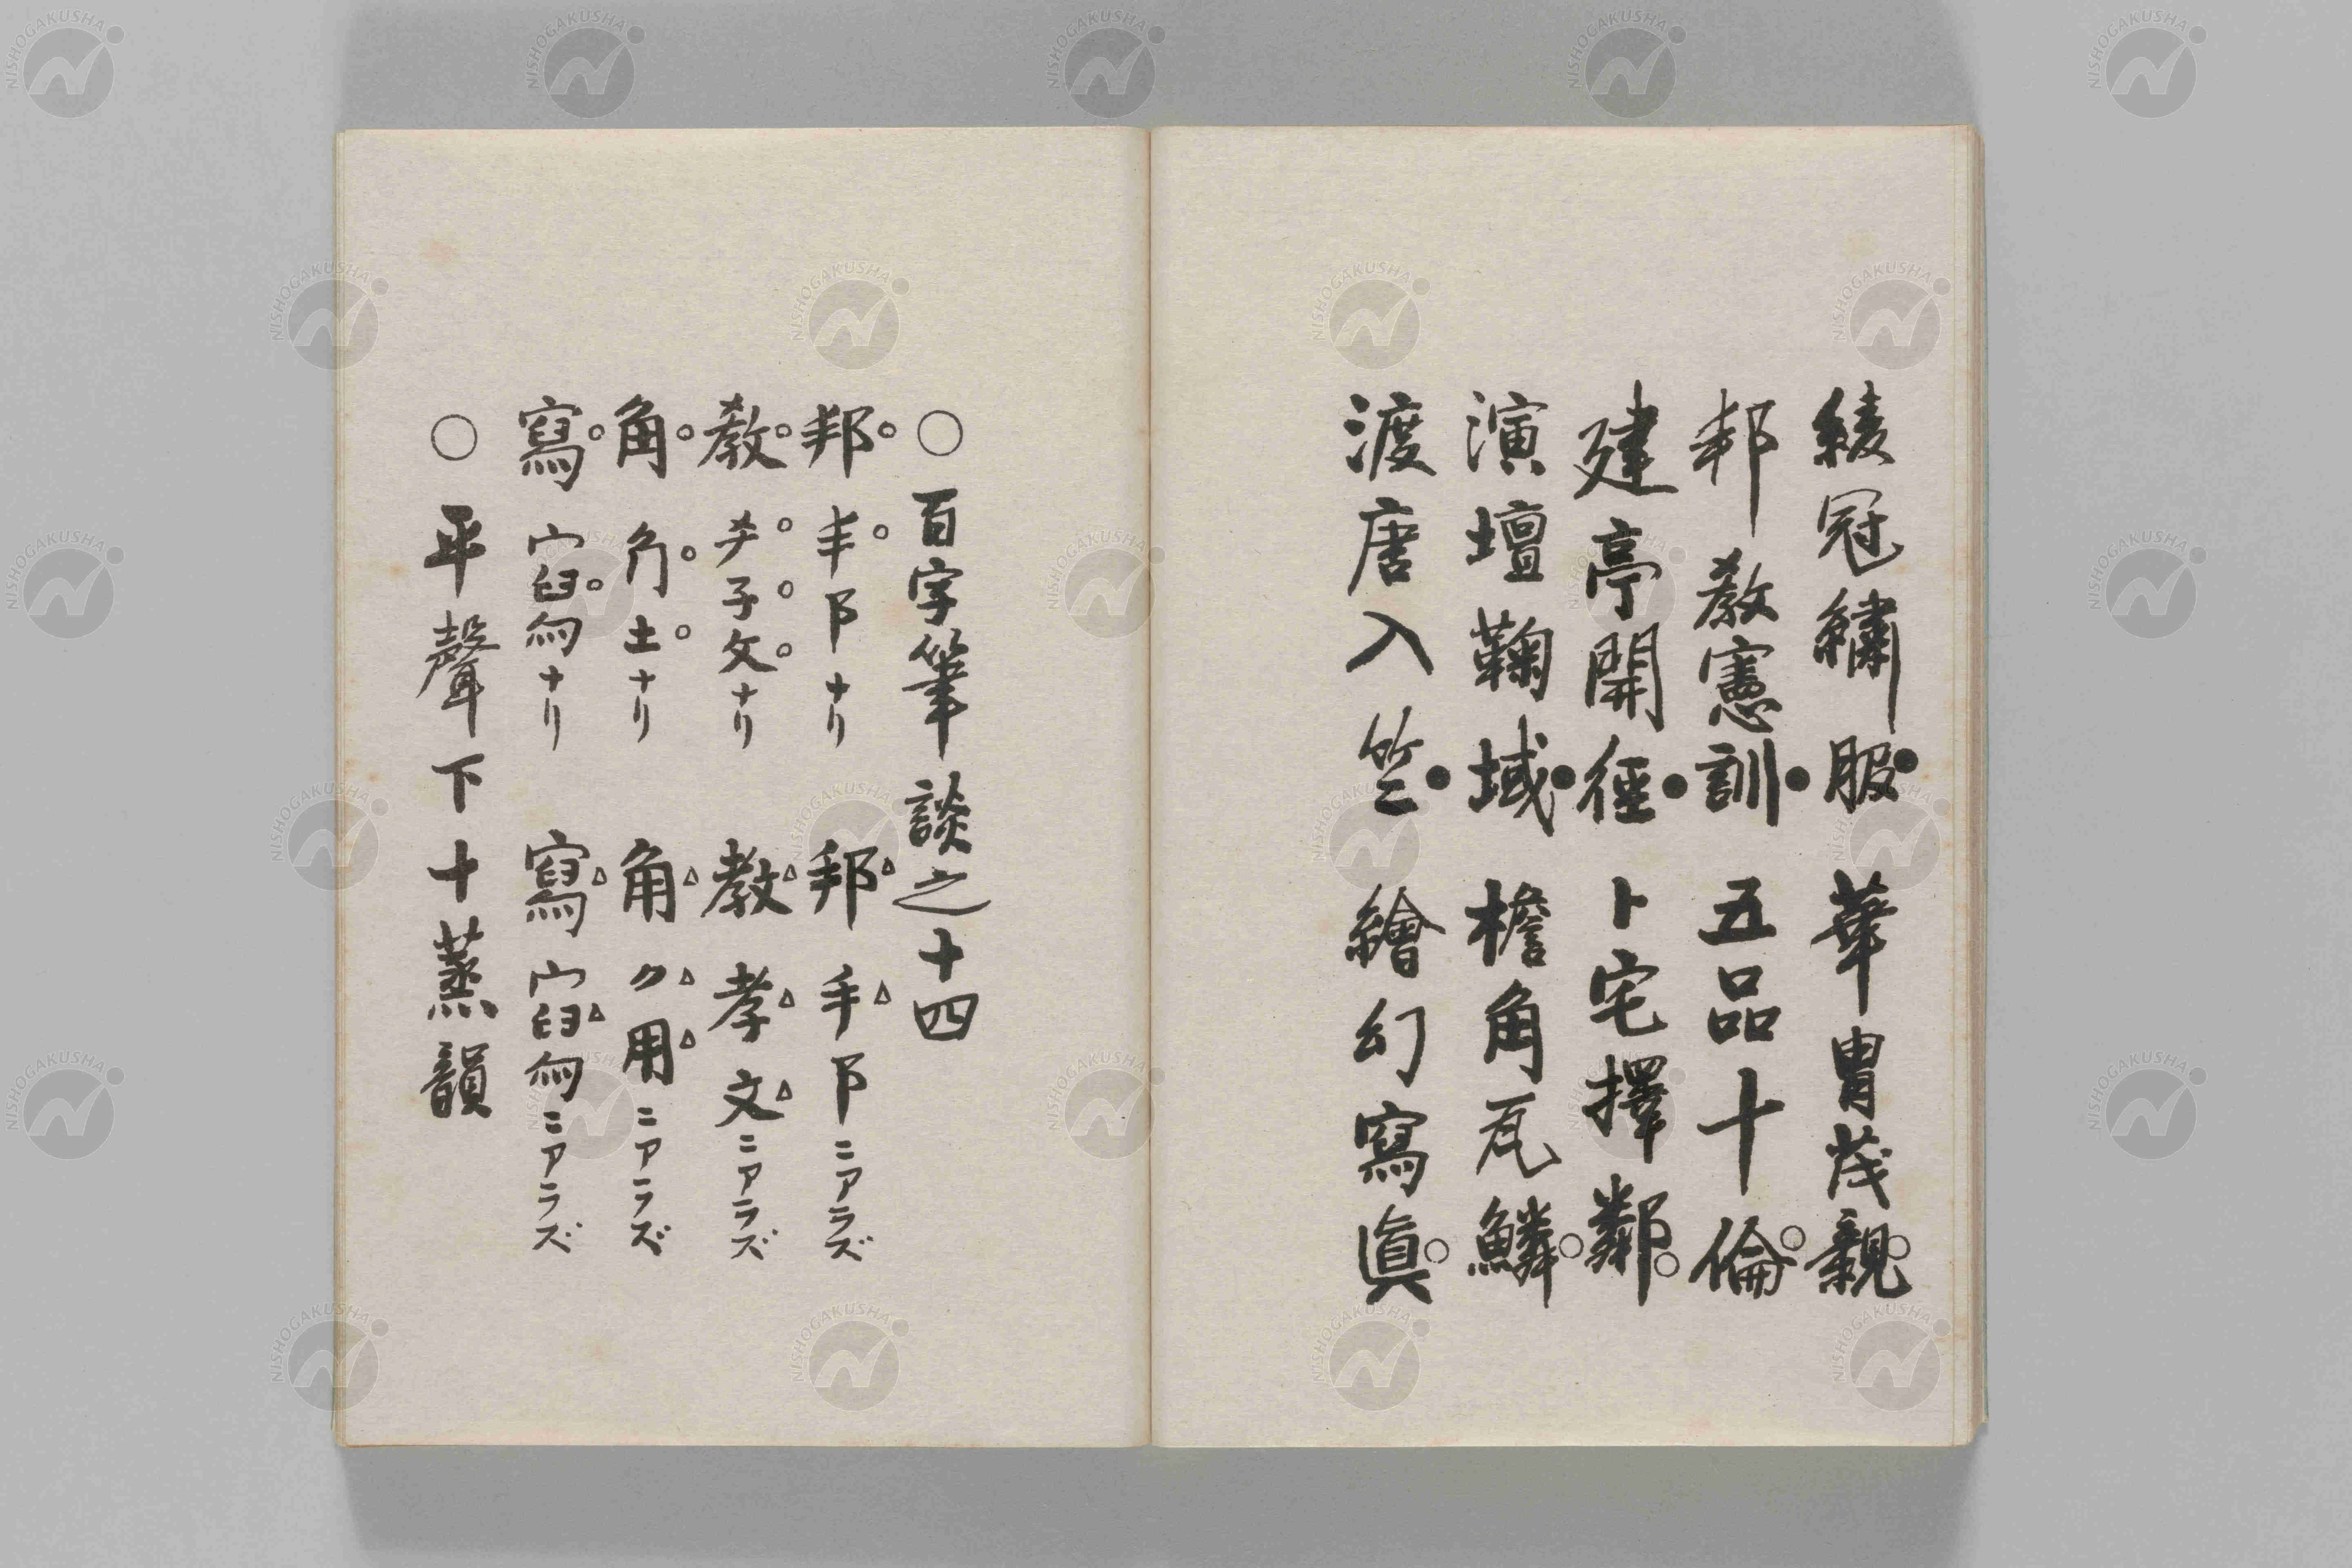 綾冠繡服●華冑茂親○
邦敎憲訓●五品十倫○
建亭開徑●卜宅擇鄰○
演壇鞠域●檐角瓦鱗○
渡唐入竺●繪幻寫眞○
○百字筆談之十四
邦○ 丰○阝ナリ 邦△ 手△阝ニアラズ
敎○ 㐅○子○攵○ナリ 教△ 孝△文△ニアラズ
角○ 角○土○ナリ 角△ ク△用△ニアラズ
寫○ 宀臼○勹ナリ 寫△ 宀臼△勹ニアラズ
○平聲下十蒸韻
NISHOGAKUSHA